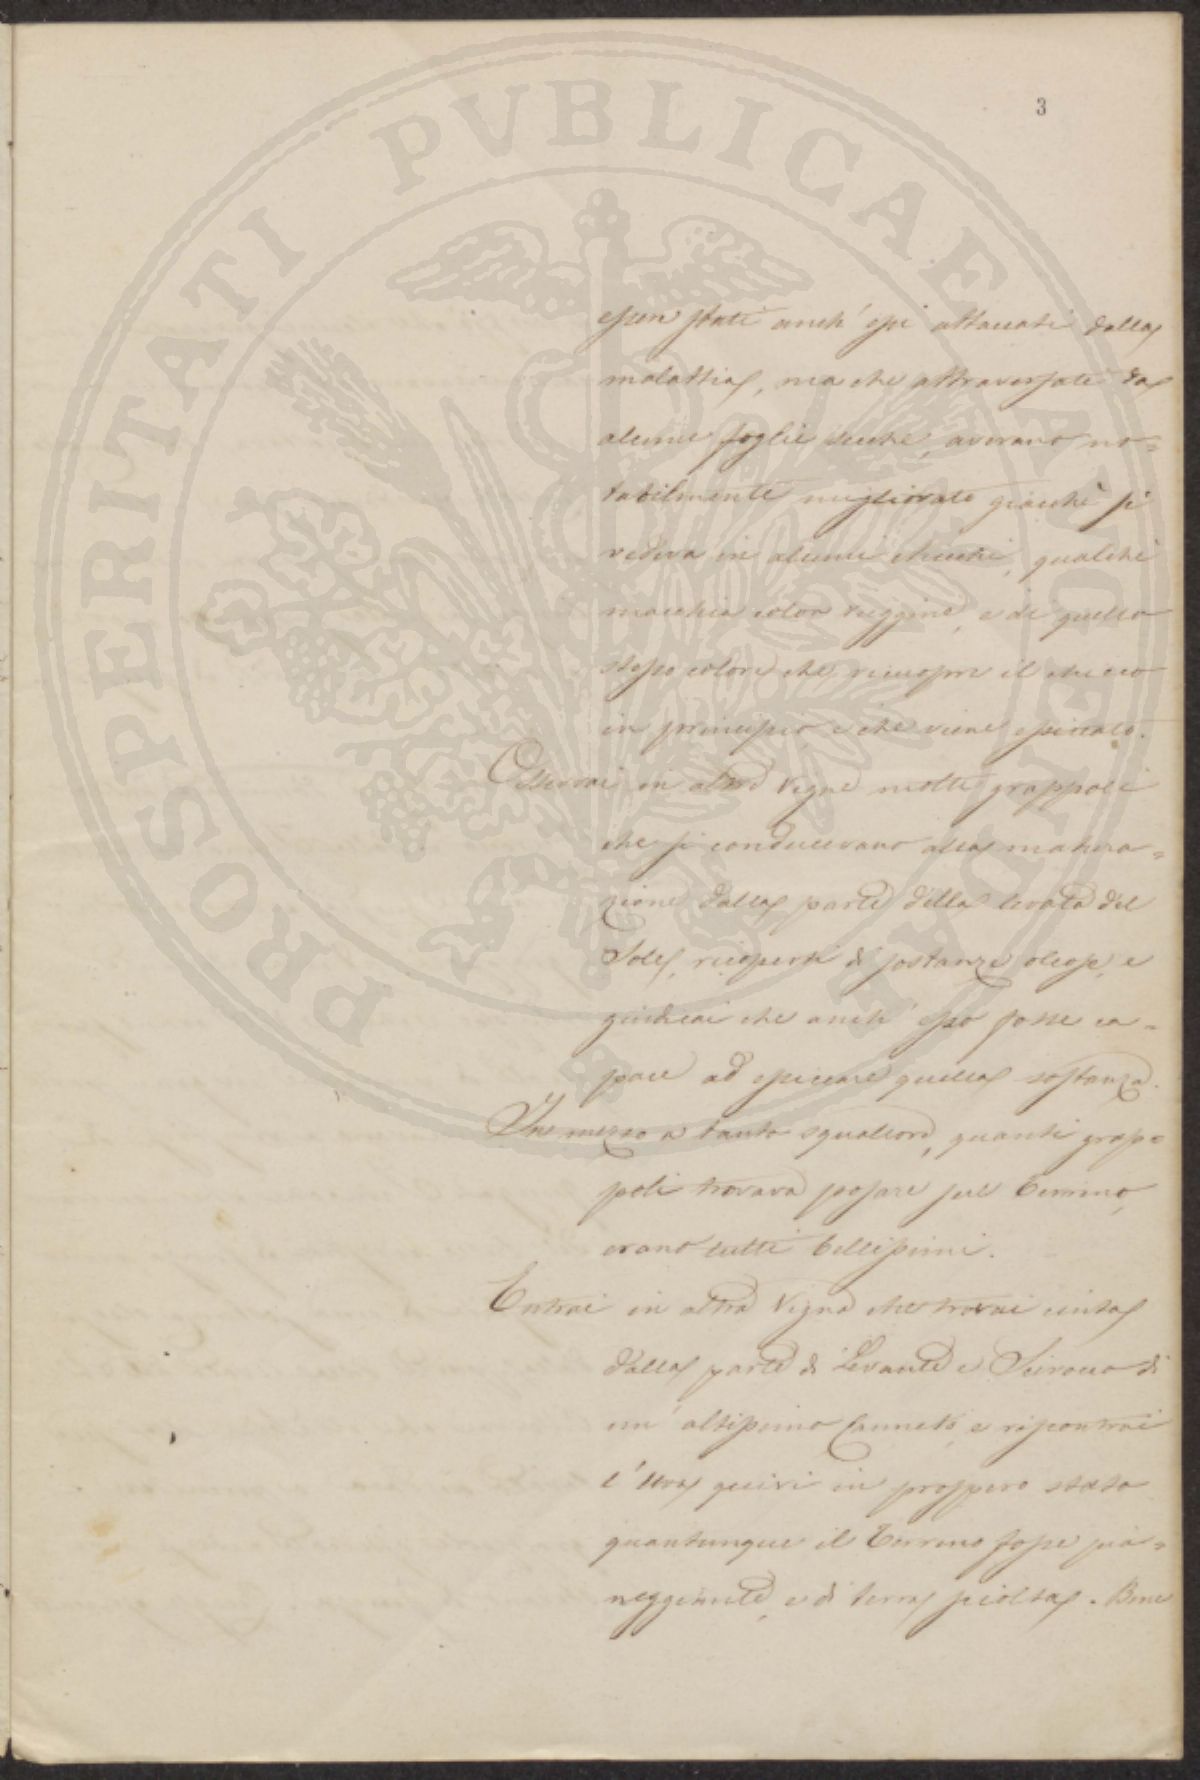 3
PROSPERITATI PVBLICAE AVGENDAE
esser stati anch' essi attaccati dalla
malattia, ma che attraversati da
alcune foglie secche, avevano no=
tabilmente migliorato giacchè si
vedeva in alcuni chicchi, qualche
macchia color ruggine, e di quello
stesso colore che ricuopre il chicco
in principio, e che viene essiccato.
Osservai in altre Vigne molti grappoli
che si conducevano alla matura=
zione dalla parte della levata del
Sole, ricoperti di sostanze oleose, e
giudicai che anch' esso fosse ca=
pace ad essiccare quella sostanza.
In mezzo a tanto squallore, quanti grap=
poli trovava posare sul terreno,
erano tutti bellissimi.
Entrai in altra Vigna che trovai cinta
dalla parte di Levante e Scirocco di
un' altissimo Canneto, e riscontrai
l'Uva quivi in prospero stato
quantunque il terreno fosse pia=
neggiante, e di terra sciolta. Bene